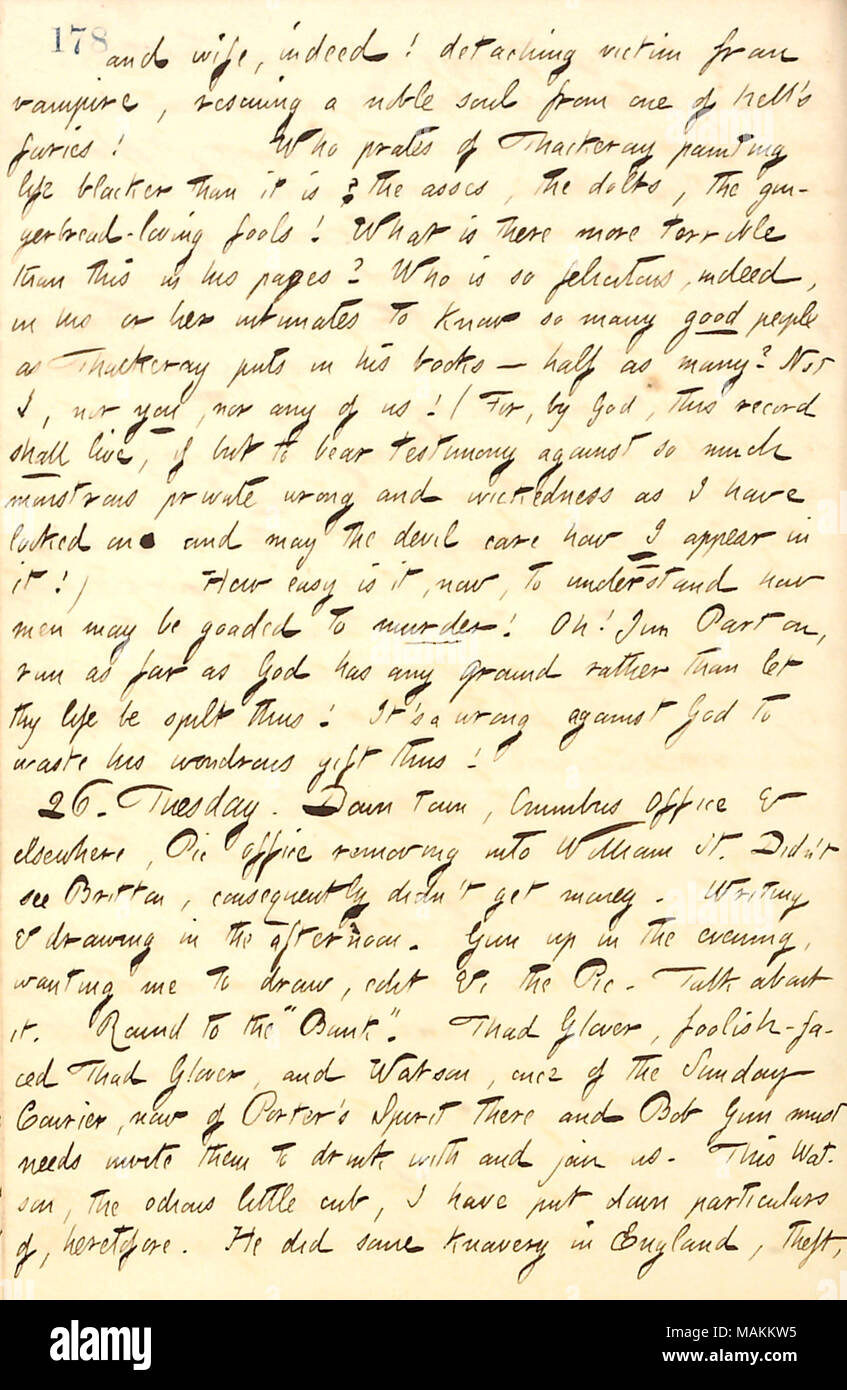 178
and wife, indeed! detaching victim from
vampire, rescuing a noble soul from one of hell's
furies! Who prates of Thackeray painting
life blacker than it is? the asses, the dolts, the gin-
gerbread-loving fools! What is there more terrible
than this in his pages? Who is so felicitous, indeed,
in his or her intimates to know so many good people
as Thackeray puts in his books — half as many? Not
I, nor you, nor any of us! (For, by God, this record
shall live, if but to bear testimony against so much
monstrous private wrong and wickedness as I have
looked on and may the devil care how I appear in
it!) How easy is it, now, to understand how
men may be goaded to murder! Oh! Jim Parton,
run as far as God has any ground rather than let
thy life be spilt thus! It's a wrong against God to
waste his wondrous gift thus!
26. Tuesday. Down town, Omnibus Office &
elsewhere, Pic office removing into William St. Didn't
see Britton, consequently didn't get money. Writing
& drawing in the afternoon. Gun up in the evening,
wanting me to draw, edit &c the Pic. Talk about
it. Round to the "Bank". Thad Glover, foolish-fa-
ced Thad Glover, and Watson, once of the Sunday
Courier, now of Porter's Spirit there and Bob Gun must
needs invite them to drink with and join us. This Wat-
son, the odious little cub, I have put down particulars
of, heretofore. He did some knavery in England, theft,
alamy
Image ID: MAKKW5
www.alamy.com